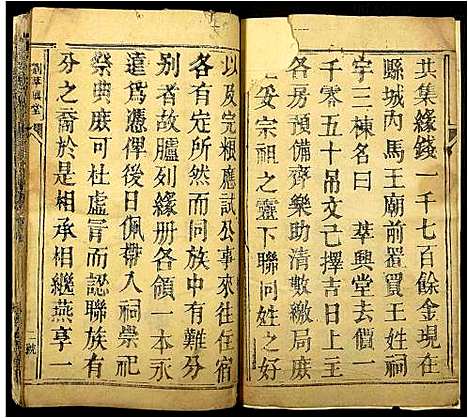 共集緣錢一千七百餘金現在
縣城內馬王廟前置買王姓祠
宇三棟名曰 莘興堂去價一
千零五十吊文己擇吉日上主
各房預備齊樂助清數繳局庶
上妥宗祖之靈下聯同姓之好
以及完粮應試公事來往住宿
各有定所然而同族中有難分
別者故臚列緣册各領一本永
遠爲憑俾後日佩帶入祠崇祀
祭典庶可杜虛冐而認聯族有
分之裔於是一相承相繼燕享一